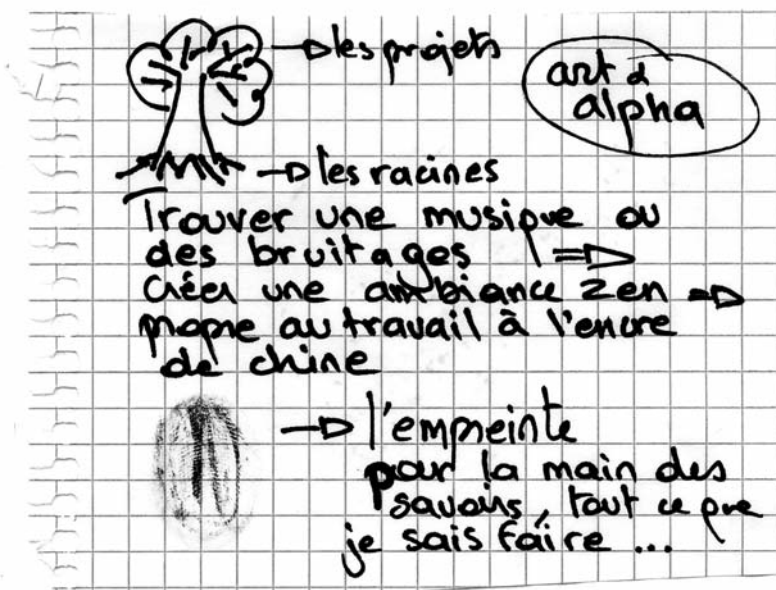 → les projets
art &
alpha
→ les racines
Trouver une musique ou
des bruitages | ⇒
créer une ambiance zen ⇒
propre au travail à l'encre
de chine
→ l'empreinte
pour la main des
savoirs, tout ce que
je sais faire ...